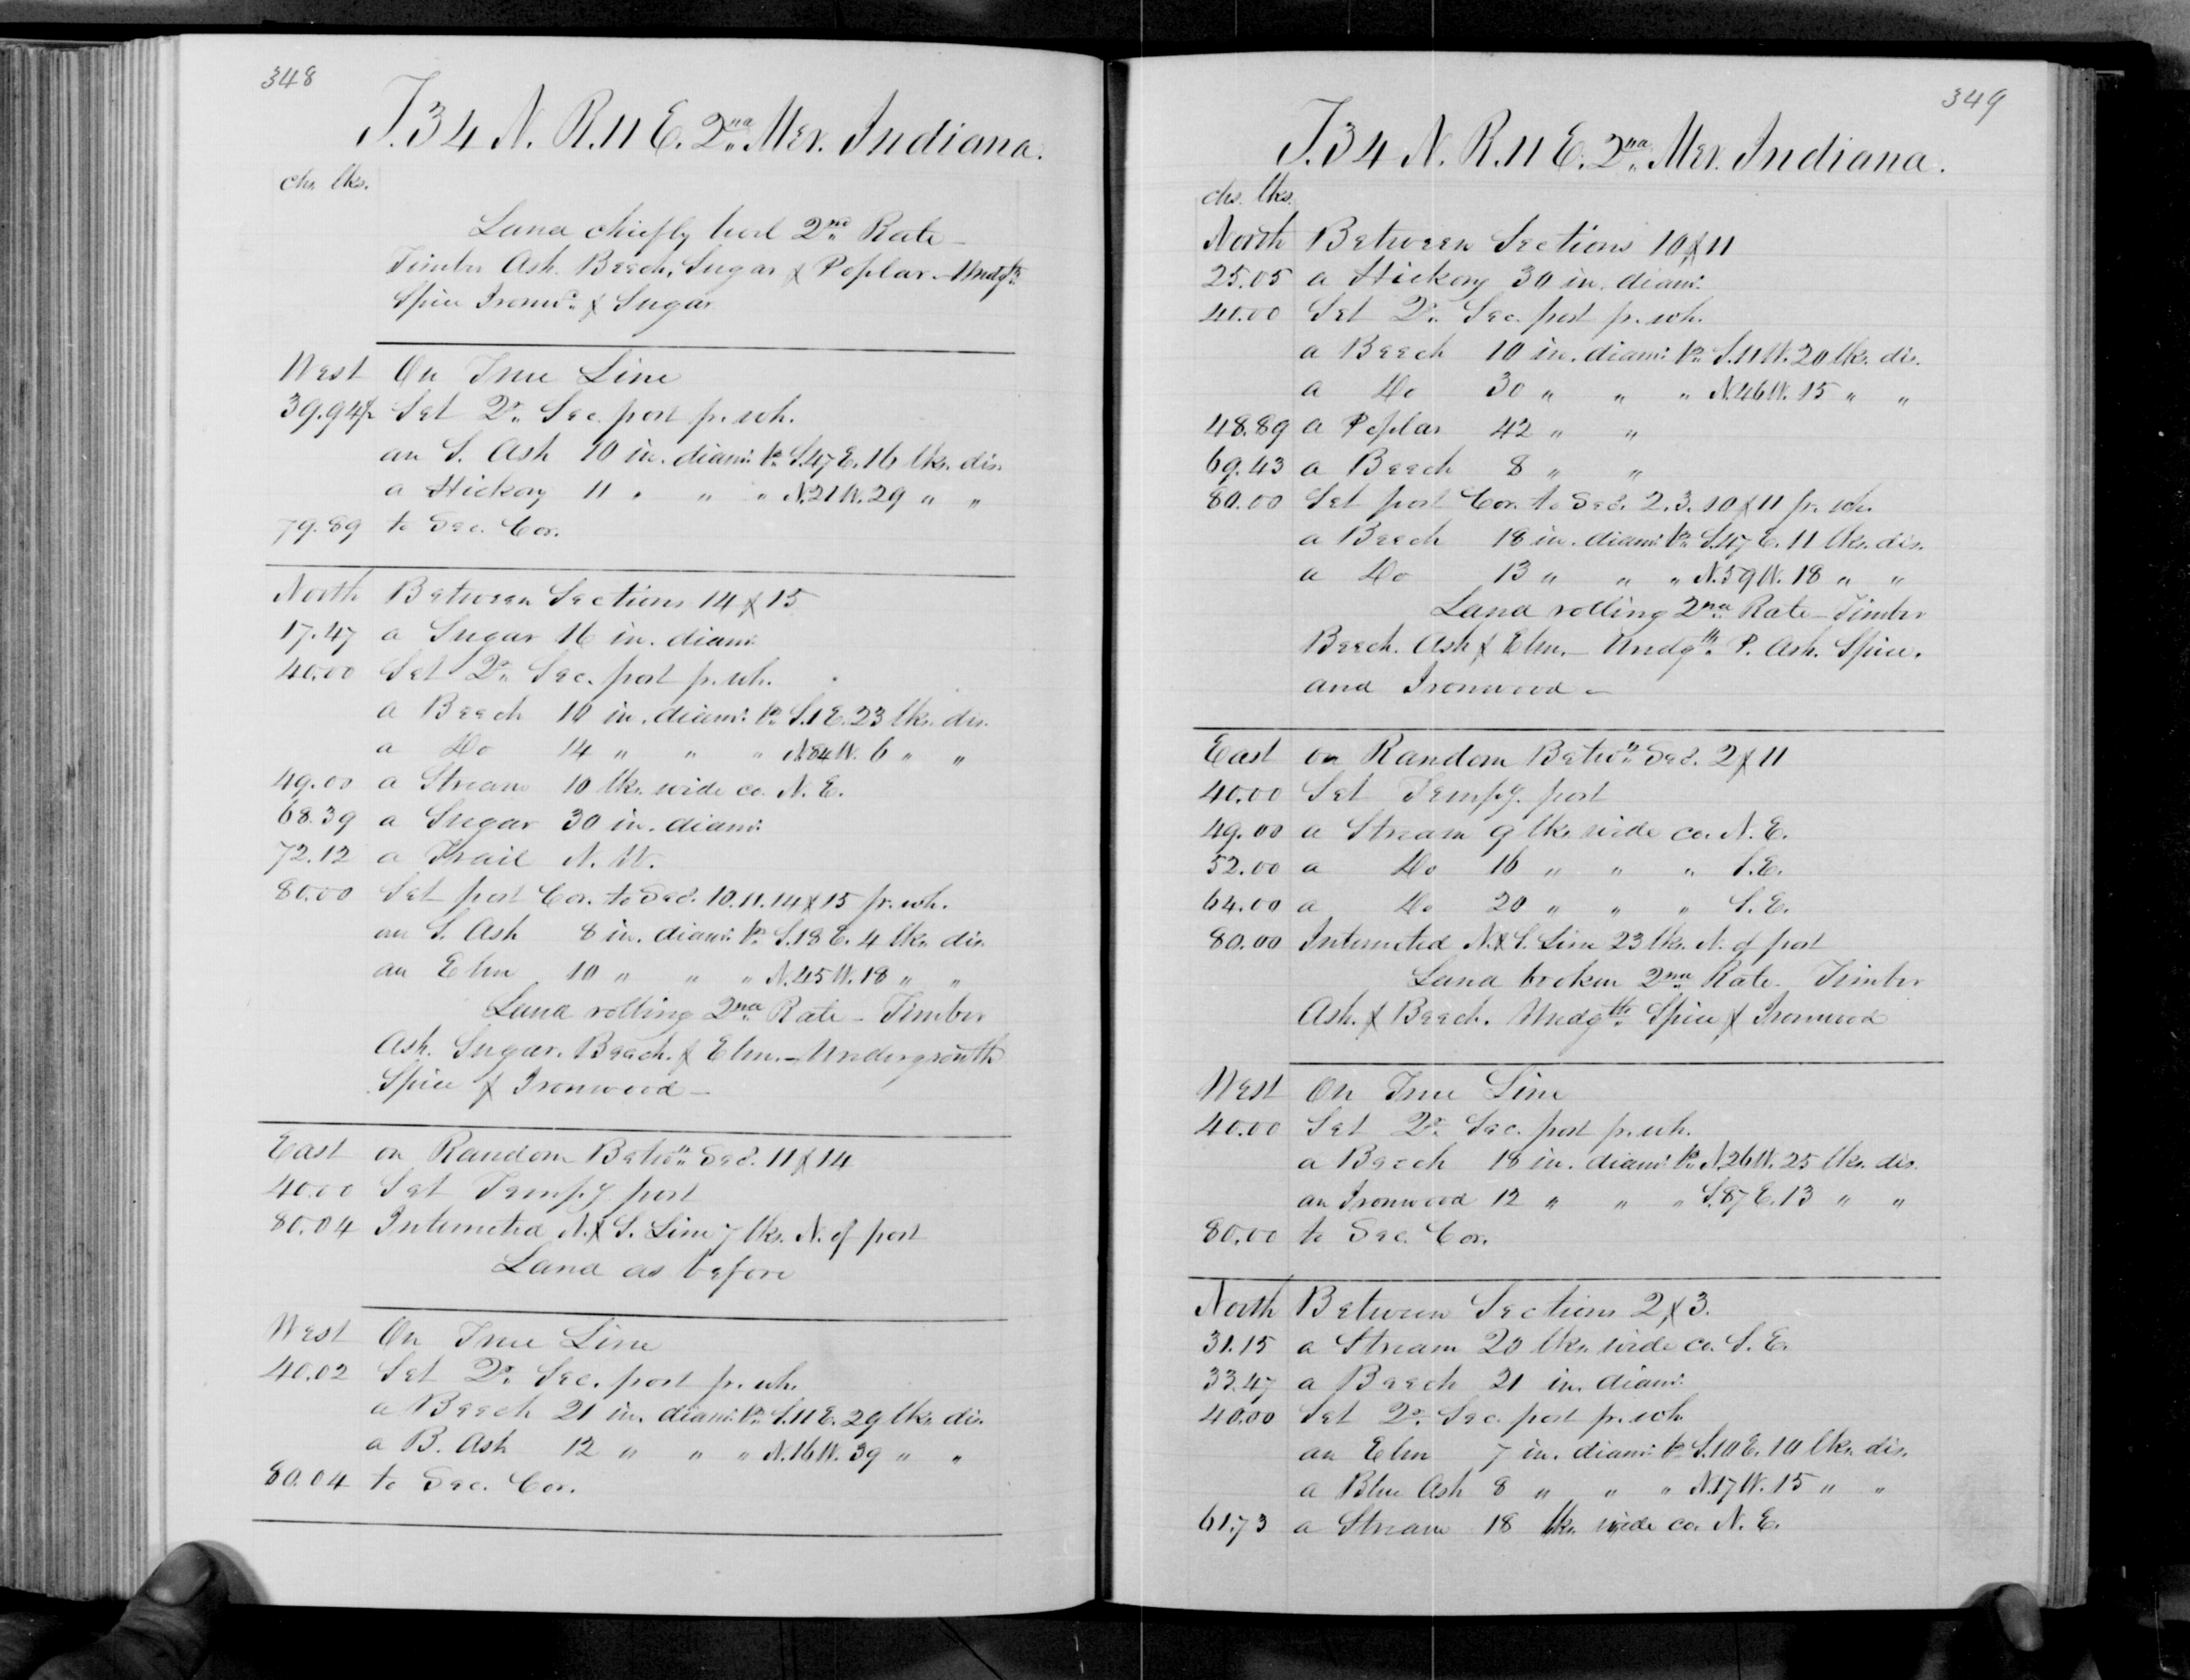 348
T. 34 N. R. 11 E. 2nd Mer. Indiana.
chs. lks.
Land chiefly level 2nd Rate –
Timber Ash. Beech, Sugar & Poplar. – Undgth
Spice Ironwd. & Sugar
West On True Line
39.94½ Set Qr. Sec. post fr. wh.
an S. Ash 10 in. diam: brs S.47 E. 16 lks. dis.
a Hickory 11 " " " N.21 W. 29 " "
79.89 to Sec. Cor.
North Between Sections 14 & 15
17.47 a Sugar 16 in. diam:
40.00 Set Qr. Sec. post fr. wh.
a Beech 10 in. diam: brs S.1 E. 23 lks. dis.
a Do 14 " " " N.84 W. 6 " "
49.00 a Stream 10 lks. wide co. N. E.
68.39 a Sugar 30 in. diam:
72.12 a Trail N. W.
80.00 Set post Cor. to Secs. 10. 11. 14 & 15 fr. wh.
an S. Ash 8 in. diam: brs S.18 E. 4 lks. dis.
an Elm 10 " " " N.45 W. 18 " "
Land rolling 2nd Rate – Timber
Ash. Sugar. Beech. & Elm. – Undergrowth
Spice & Ironwood –
East on Random Betwn Secs. 11 & 14
40.00 Set Tempy post
80.04 Intersected N. & S. Line 7 lks. N. of post
Land as before
West On True Line
40.02 Set Qr. Sec. post fr. wh.
a Beech 21 in. diam: brs S.11 E. 29 lks. dis.
a B. Ash 12 " " " N.16 W. 39 " "
80.04 to Sec. Cor.
349
T. 34 N. R. 11 E. 2nd Mer. Indiana.
chs. lks.
North Between Sections 10 & 11
25.05 a Hickory 30 in. diam:
40.00 Set Qr. Sec. post fr. wh.
a Beech 10 in. diam: brs S.11 W. 20 lks. dis.
a Do 30 " " " N.46 W. 15 " "
48.89 a Poplar 42 " "
69.43 a Beech 8 " "
80.00 Set post Cor. to Secs. 2. 3. 10 & 11 fr. wh.
a Beech 18 in. diam: brs S.47 E. 11 lks. dis.
a Do 13 " " " N.59 W. 18 " "
Land rolling 2nd Rate – Timber
Beech. Ash & Elm. – Undgth P. Ash. Spice.
and Ironwood –
East on Random Betwn Secs. 2 & 11
40.00 Set Tempy. post
49.00 a Stream 9 lks. wide co. N. E.
52.00 a Do 16 " " " S. E.
64.00 a Do 20 " " " S. E.
80.00 Intersected N. & S. Line 23 lks. N. of post
Land broken 2nd Rate. Timber
Ash. & Beech. Undgth Spice & Ironwood
West On True Line
40.00 Set Qr. Sec. post fr. wh.
a Beech 18 in. diam: brs N.26 W. 25 lks. dis.
an Ironwood 12 " " " S.87 E. 13 " "
80.00 to Sec. Cor.
North Between Sections 2 & 3.
31.15 a Stream 20 lks. wide co. S. E.
33.47 a Beech 21 in. diam:
40.00 Set Qr. Sec. post fr. wh.
an Elm 7 in. diam: brs S.10 E. 10 lks. dis.
a Blue Ash 8 " " " N.17 W. 15 " "
61.73 a Stream 18 lks. wide co. N. E.